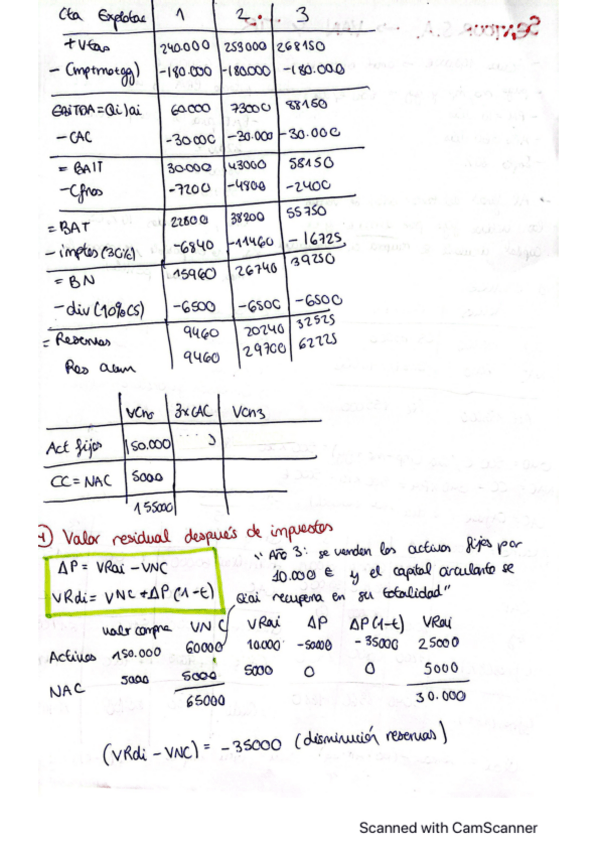 Cta Explotac 1 2 3
+ Vtas 240.000 253000 268150
- (mptmotgg) -180.000 -180000 -180.000
EBITDA=Qi)ai 60000 73000 88150
- CAC -30000 -30.000 -30.000
= BAIT 30000 43000 58150
- Cfnos -7200 -4800 -2400
= BAT 22800 38200 55750
- imptes (30%) -6840 -11460 -16725
= BN 15960 26740 39250
- div (10%CS) -6500 -6500 -6500
= Reservas 9460 20240 32525
Res acum 9460 29700 62225
VCn3 3xCAC VCn3
Act fijos 150.000
CC = NAC 5000
155000
1) Valor residual después de impuestos
ΔP = VRai - VNC
VRdi = VNC + ΔP (1-t)
"Año 3: se venden los activos fijos por
10.000 € y el capital circulante se
recupera en su totalidad"
valor compra VNC VRai ΔP ΔP(1-t) VRdi
Activos 150.000 60000 10000 -50000 -35000 25000
NAC 5000 5000 5000 0 0 5000
65000 30.000
(VRdi - VNC) = -35000 (disminución reservas)
Scanned with CamScanner